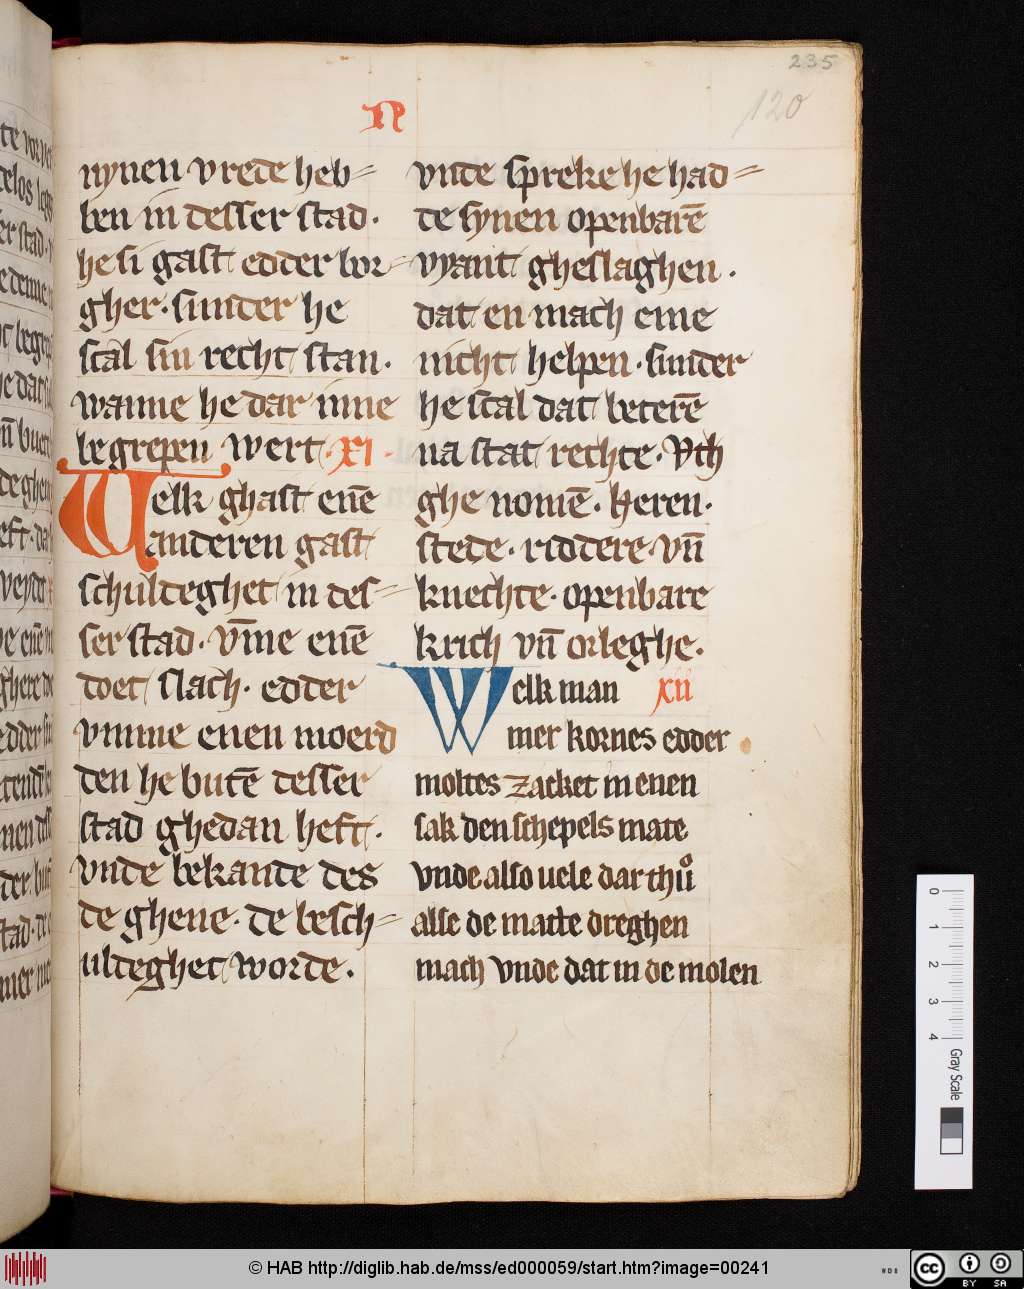 235
120
N
nynen vrede heb=
ben in desser stad·
he si gast edder bor=
gher· sunder he
scal sin recht stan·
wanne he dar inne
begrepen wert· XI·
Welk ghast enē
anderen gast
schuldeghet in des=
ser stad· vm̄e enē
doet slach· edder
vmme enen moerd
den he butē desser
stad ghedan heft·
vnde bekande des
de ghene· de besch=
uldeghet worde·
vnde spreke he had=
de synen openbarē
vyant gheslaghen·
dat en mach eme
nicht helpen· sunder
he scal dat beterē
na stat rechte· Vth
ghe nomē· heren·
stede· riddere vn̄
knechte· openbare
krich vn̄ orleghe·
Welk man xii
mer kornes edder
moltes zacket in enen
sak den schepels mate
vnde also uele dar thuͦ
alse de matte dreghen
mach vnde dat in de molen
0 1 2 3 4
Gray Scale
© HAB http://diglib.hab.de/mss/ed000059/start.htm?image=00241
WDB
cc BY SA